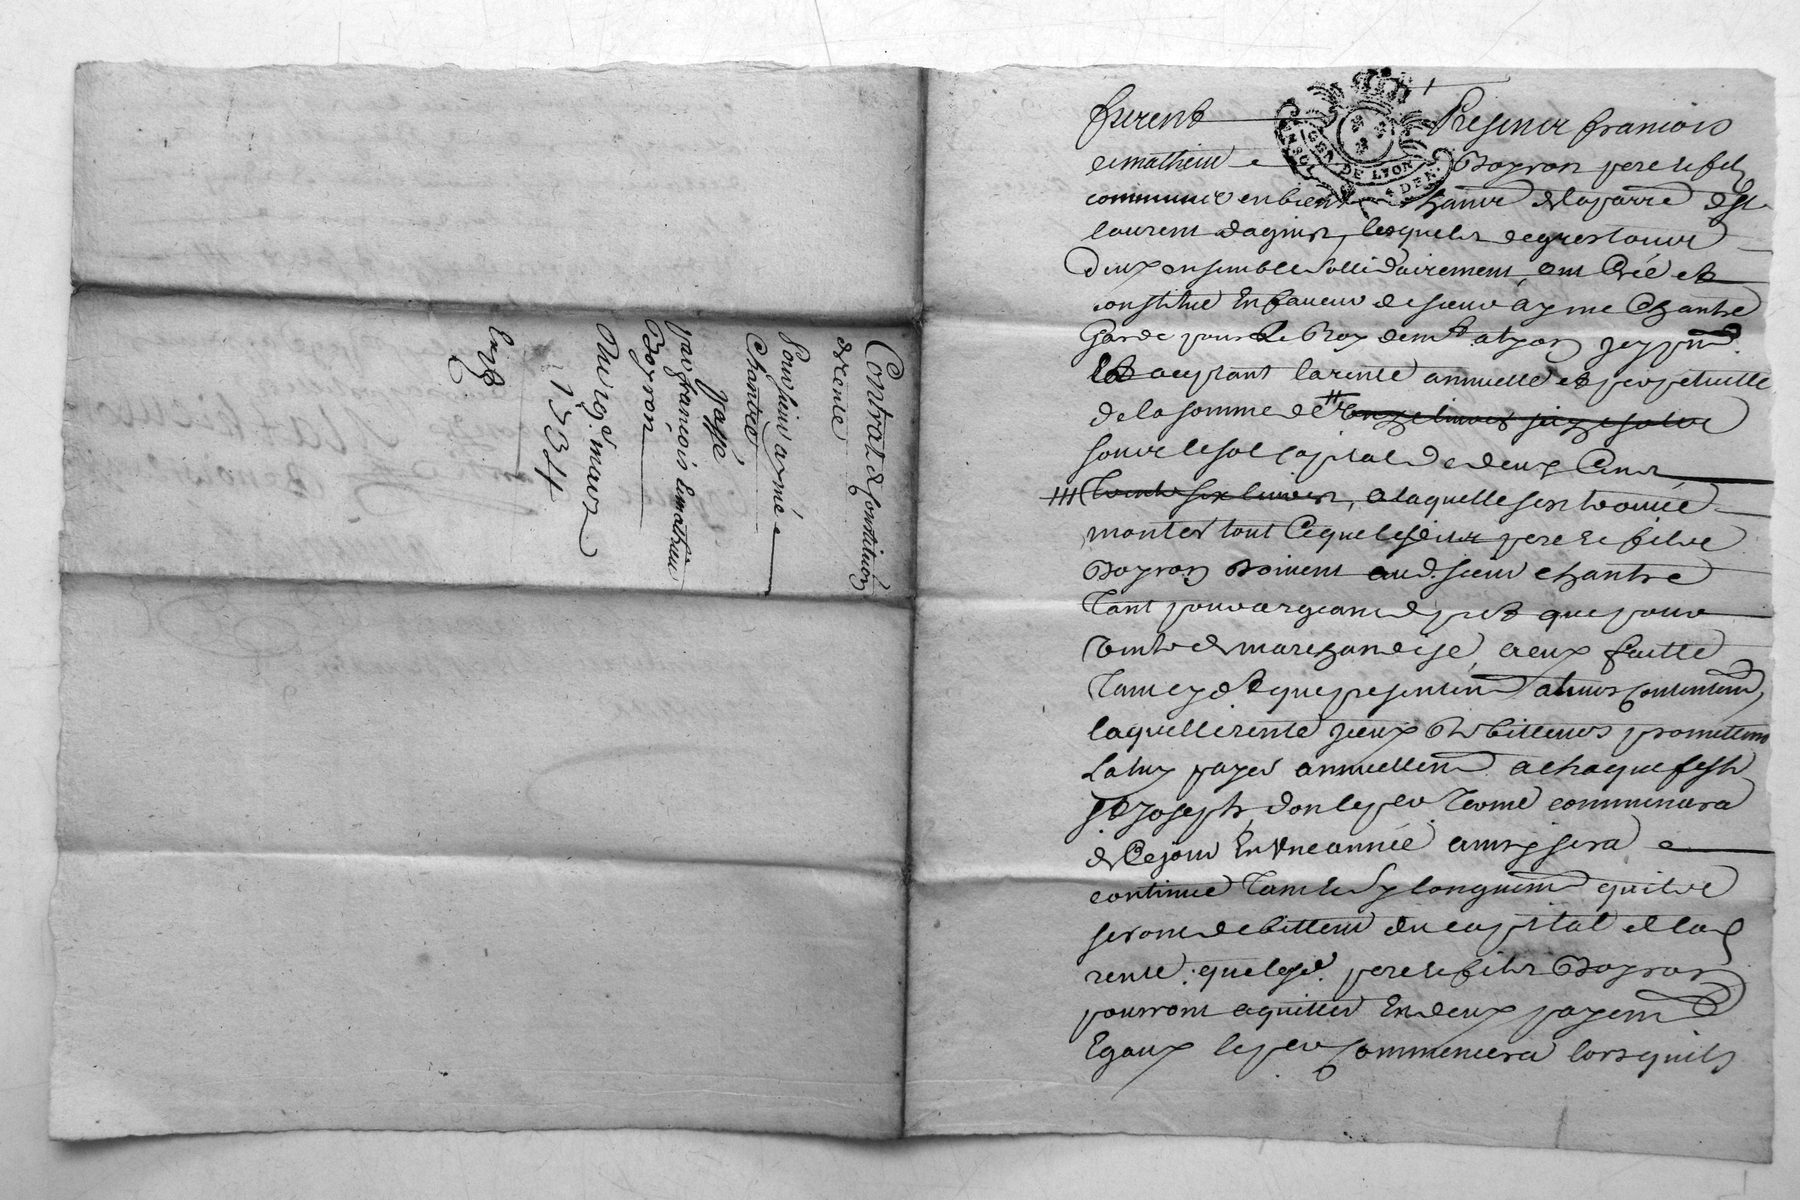 Contrat de Constitution
de rente
Pour sieur aymé
Chantre
Passé
par francois & mathieu
Boyron
Du 19.e mars
1734
furent Presents francois
et mathieu Boyron pere et fils
GEN DE LYON
4 DEN.
communs en biens de la parre de St
laurent dagnin, lesquels de gres tous
deux ensemble sollidairement ont Créé et
constitué En faveur de sieur ayme Chantre
Garde pour Le Roy a lyon
acceptant la rente annuelle et perpetuelle
de la somme de onze livres seize sols
sous le sol capital de deux Cent
trente six livres, a laquelle sest trouvé
monter tout Ce que lesdits pere et fils
Boyron doivent aud. sieur chantre
Tant pour argent de pret que pour
vente de marchandise a eux faitte
Tant cyd.t que presentem.t a leurs contentem.t,
laquelle rente yceux debitteurs promettent
La luy payer annuellem.t a chaque feste
St Joseph, dont le per terme commencera
de Ce jour En Une année ainsy sera
continué Tant et Sy longuem.t quils
seront debitteurs du capital de lad
rente. que lesd. pere et fils Boyron
pourront aquitter En deux payem.t
Egaux le per Commencera lorsquils